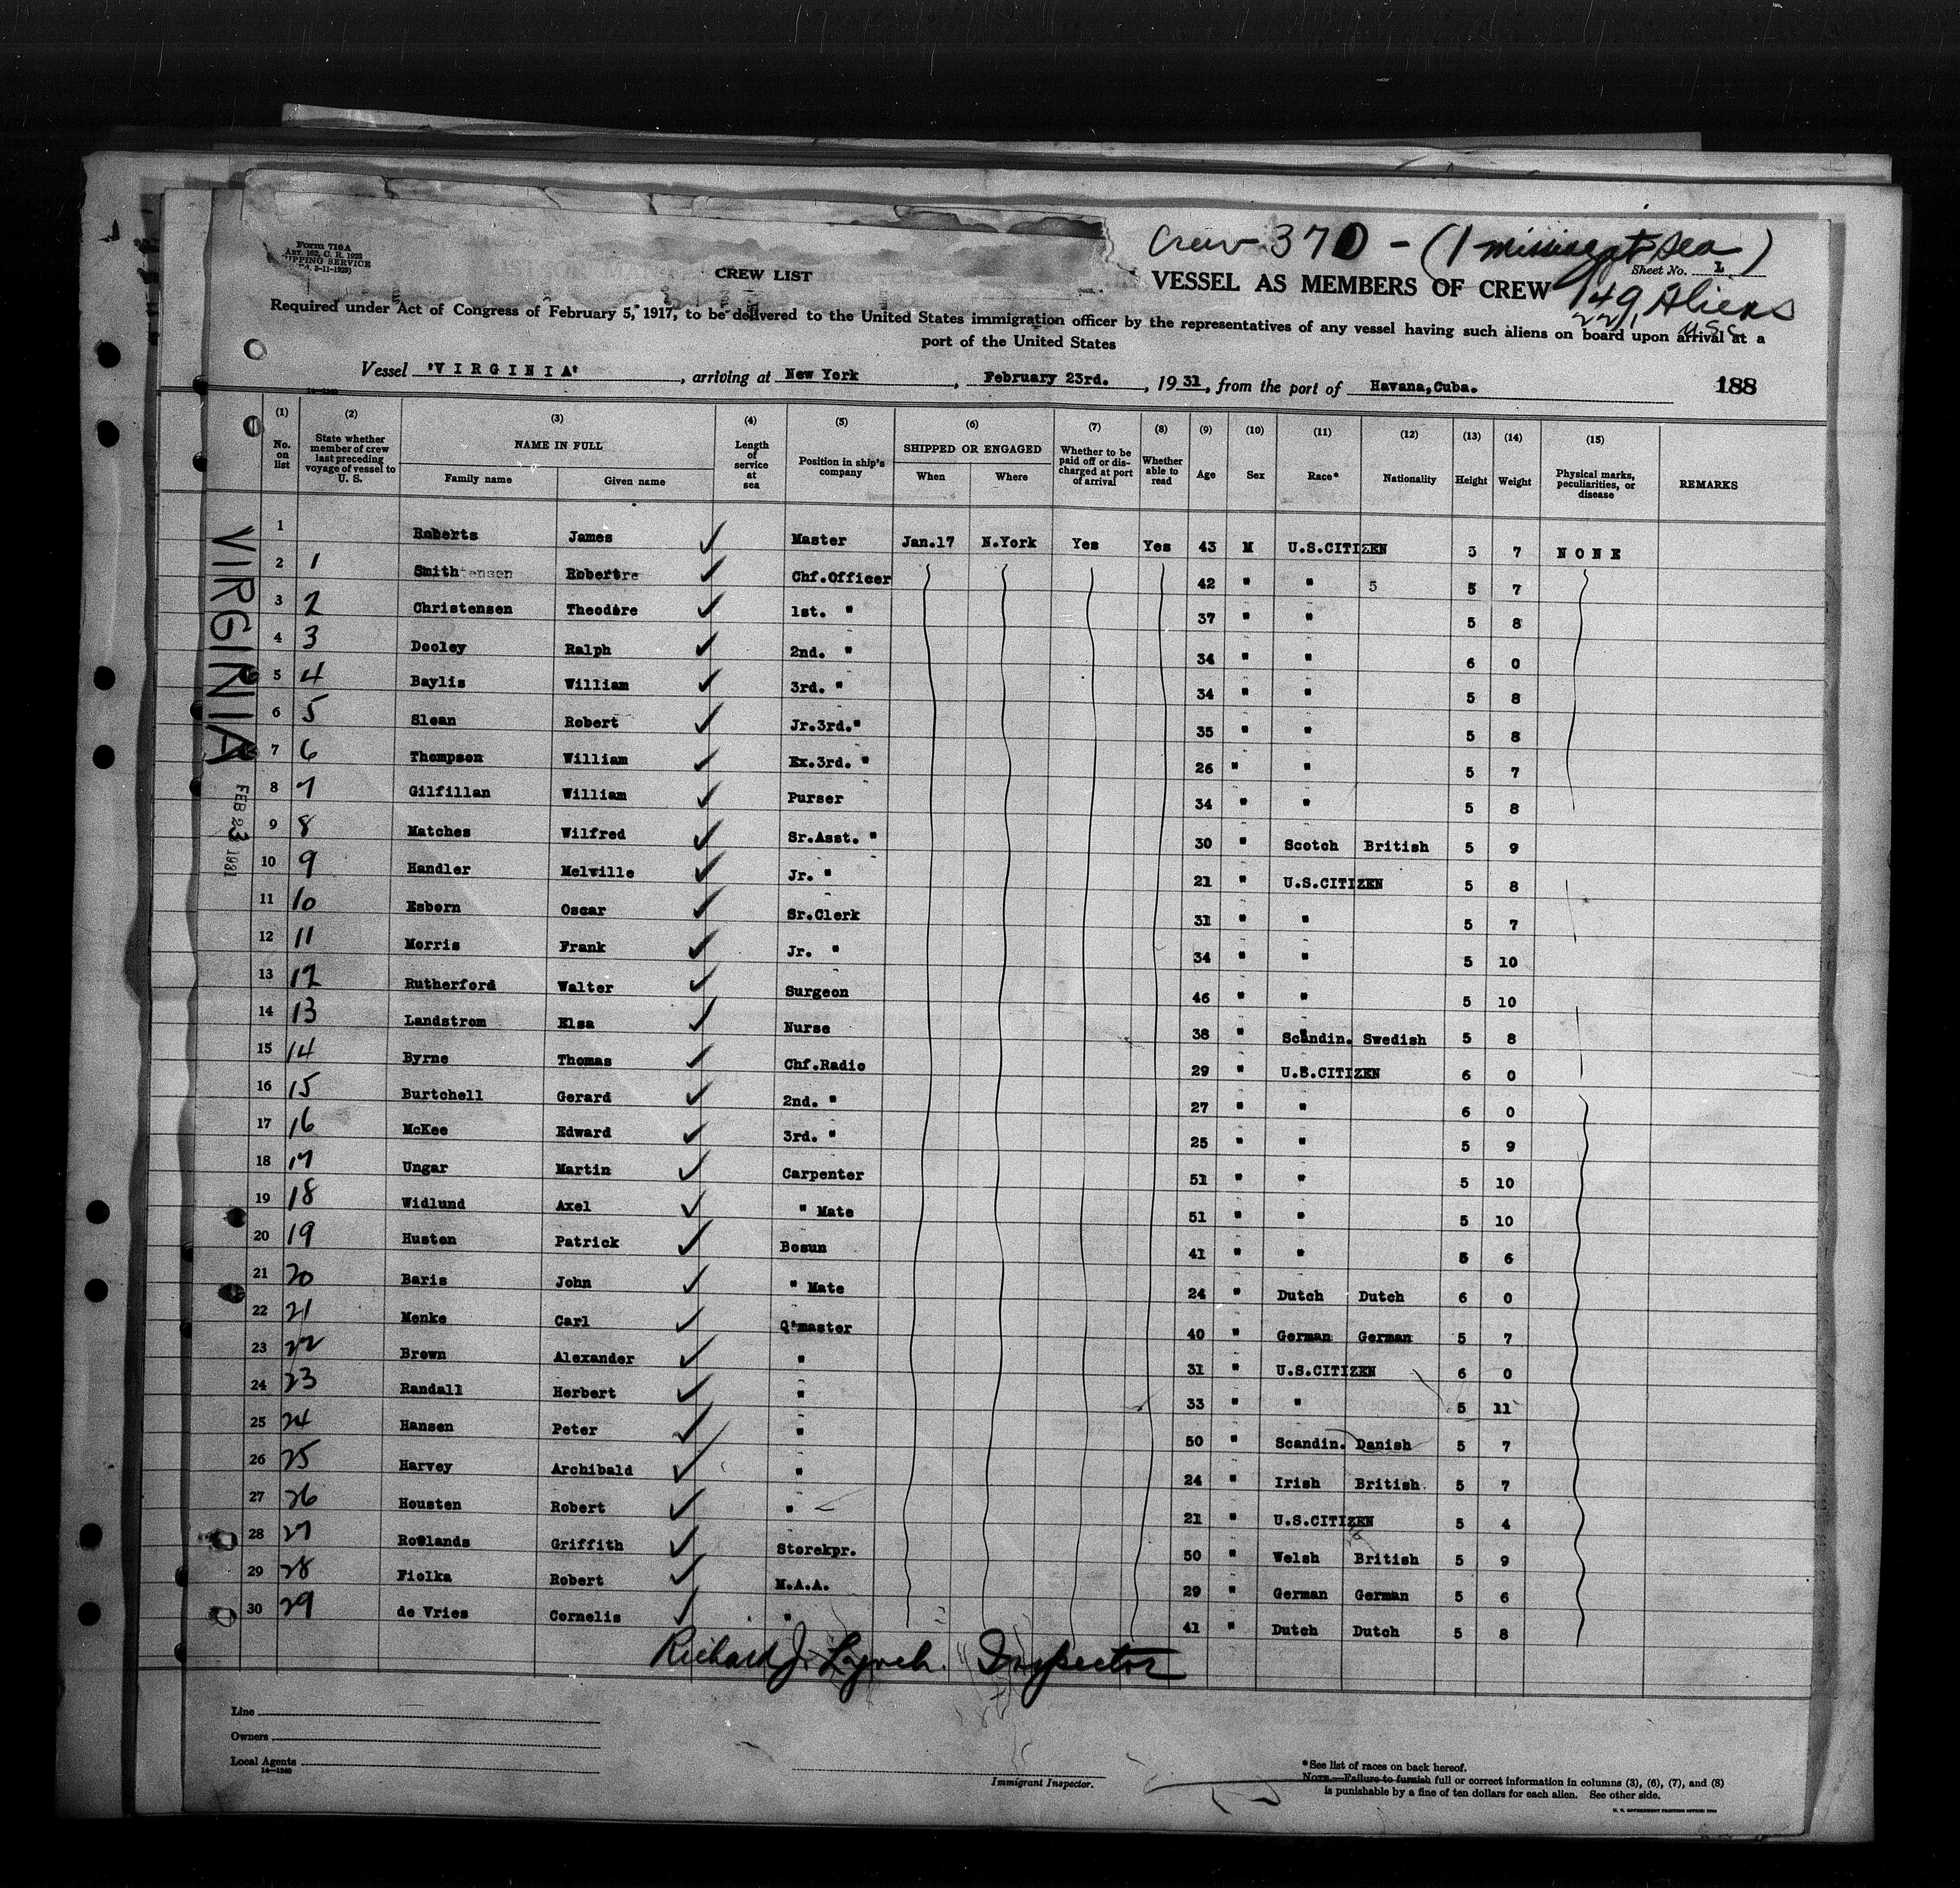 Crew 370 - (1 missing at sea)
Form 716A
ART. 162, C. R. 1923
3-11-1929)
CREW LIST
Sheet No. 1
VESSEL AS MEMBERS OF CREW
149 Aliens
221 U.S.C.
Required under Act of Congress of February 5, 1917, to be delivered to the United States immigration officer by the representatives of any vessel having such aliens on board upon arrival at a
port of the United States
Vessel 'VIRGINIA', arriving at New York, February 23rd., 1931, from the port of Havana, Cuba. 188
(1) No. on list (2) State whether member of crew last preceding voyage of vessel to U. S. (3) NAME IN FULL Family name Given name (4) Length of service at sea (5) Position in ship's company (6) SHIPPED OR ENGAGED When Where (7) Whether to be paid off or discharged at port of arrival (8) Whether able to read (9) Age (10) Sex (11) Race* (12) Nationality (13) Height (14) Weight (15) Physical marks, peculiarities, or disease REMARKS
1 Roberts James ✓ Master Jan.17 N.York Yes Yes 43 M U.S.CITIZEN 5 7 NONE
2 1 Smith Robert ✓ Chf.Officer 42 " " 5 5 7
3 2 Christensen Theodore ✓ 1st. " 37 " " 5 8
4 3 Dooley Ralph ✓ 2nd. " 34 " " 6 0
5 4 Baylis William ✓ 3rd. " 34 " " 5 8
6 5 Sloan Robert ✓ Jr.3rd." 35 " " 5 8
7 6 Thompson William ✓ Ex.3rd. " 26 " " 5 7
8 7 Gilfillan William ✓ Purser 34 " " 5 8
9 8 Matches Wilfred ✓ Sr.Asst. " 30 " Scotch British 5 9
10 9 Handler Melville ✓ Jr. " 21 " U.S.CITIZEN 5 8
11 10 Esborn Oscar ✓ Sr.Clerk 31 " " 5 7
12 11 Morris Frank ✓ Jr. " 34 " " 5 10
13 12 Rutherford Walter ✓ Surgeon 46 " " 5 10
14 13 Landstrom Elsa ✓ Nurse 38 " Scandin. Swedish 5 8
15 14 Byrne Thomas ✓ Chf.Radio 29 " U.S.CITIZEN 6 0
16 15 Burtchell Gerard ✓ 2nd. " 27 " " 6 0
17 16 McKee Edward ✓ 3rd. " 25 " " 5 9
18 17 Ungar Martin ✓ Carpenter 51 " " 5 10
19 18 Widlund Axel ✓ " Mate 51 " " 5 10
20 19 Huston Patrick ✓ Bosun 41 " " 5 6
21 20 Baris John ✓ " Mate 24 " Dutch Dutch 6 0
22 21 Menke Carl ✓ Q'master 40 " German German 5 7
23 22 Brown Alexander ✓ " 31 " U.S.CITIZEN 6 0
24 23 Randall Herbert ✓ " 33 " " 5 11
25 24 Hansen Peter ✓ " 50 " Scandin. Danish 5 7
26 25 Harvey Archibald ✓ " 24 " Irish British 5 7
27 26 Housten Robert ✓ " 21 " U.S.CITIZEN 5 4
28 27 Rowlands Griffith ✓ Storekpr. 50 " Welsh British 5 9
29 28 Fiolka Robert ✓ M.A.A. 29 " German German 5 6
30 29 de Vries Cornelis ✓ " 41 " Dutch Dutch 5 8
VIRGINIA
FEB 23 1931
Richard J. Lynch. Inspector
Line
Owners
Local Agents
14—1240
Immigrant Inspector.
*See list of races on back hereof.
NOTE.—Failure to furnish full or correct information in columns (3), (6), (7), and (8)
is punishable by a fine of ten dollars for each alien. See other side.